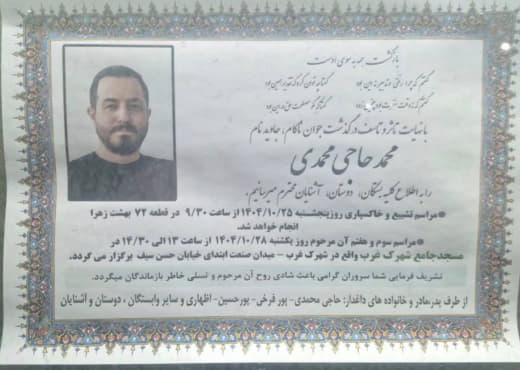 بازگشت همه بسوی اوست
گفتم که چرا رفتی و تدبیر تو این بود
گفتا چه توان کرد که تقدیر همین بود
گفتم که نه وقت سفرت بود چنین زود
گفتا که مصلحت حق در این بود
با نهایت تاثر و تاسف درگذشت جوان ناکام، جاوید نام
محمد حاجی محمدی
را به اطلاع کلیه بستگان، دوستان، آشنایان محترم میرسانیم.
● مراسم تشییع و خاکسپاری روز پنجشنبه ۱۴۰۴/۱۰/۲۵ از ساعت ۹/۳۰ در قطعه ۷۲ بهشت زهرا
انجام خواهد شد.
● مراسم سوم و هفتم آن مرحوم روز یکشنبه ۱۴۰۴/۱۰/۲۸ از ساعت ۱۳ الی ۱۴/۳۰ در
مسجد جامع شهرک غرب واقع در شهرک غرب - میدان صنعت ابتدای خیابان حسن سیف برگزار می گردد.
تشریف فرمایی شما سروران گرامی باعث شادی روح آن مرحوم و تسلی خاطر بازماندگان میگردد.
از طرف پدر،مادر و خانواده های داغدار: حاجی محمدی- پور فرخی- پورحسین- اظهاری و سایر وابستگان ، دوستان و آشنایان